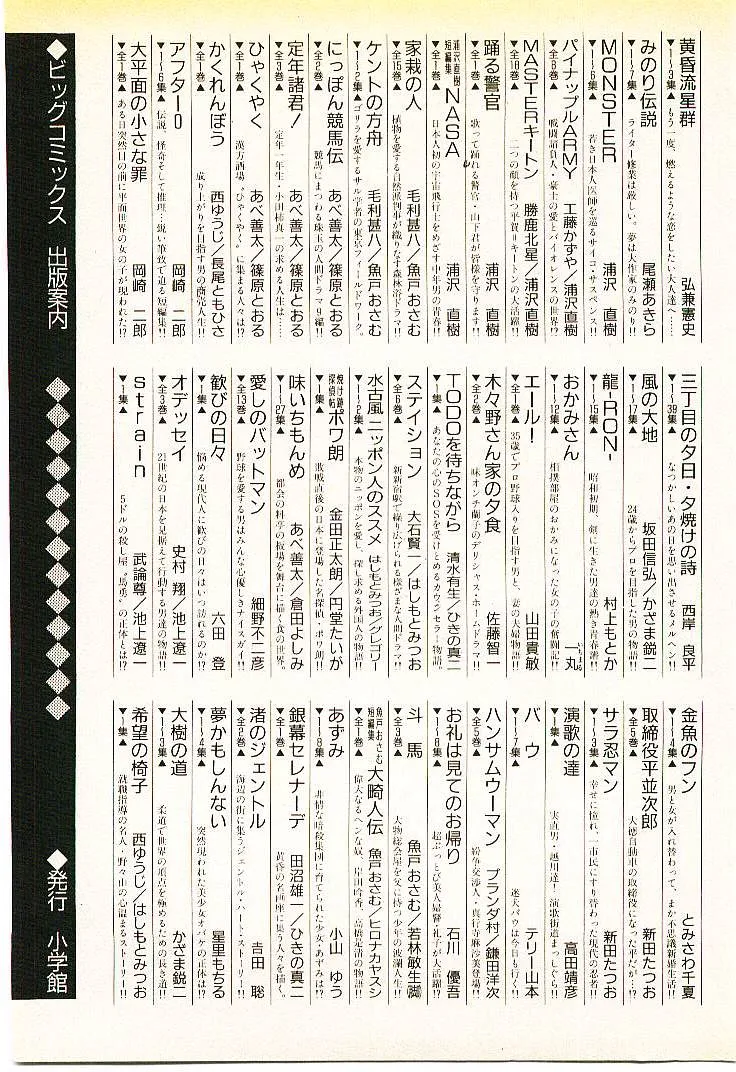 黄昏流星群　弘兼憲史
▼1〜3集▲ もう一度、燃えるような恋をしたい大人達へ……
みのり伝説　尾瀬あきら
▼1〜7集▲ ライター修業は厳しい。夢は大作家のみのり!!
MONSTER　浦沢 直樹
▼1〜6集▲ 若き日本人医師を巡るサイコ・サスペンス!!
パイナップルARMY　工藤かずや／浦沢直樹
▼全8巻▲ 戦闘請負人・豪士の愛とバイオレンスの世界!?
MASTERキートン　勝鹿北星／浦沢直樹
▼全18巻▲ 二つの顔を持つ平賀＝キートンの大活躍!!
踊る警官　浦沢 直樹
▼全1巻▲ 歌って踊れる警官・山下君が皆様を守ります!!
浦沢直樹短編集 NASA　浦沢 直樹
▼全1集▲ 日本人初の宇宙飛行士をめざす中年男の青春!!
家栽の人　毛利甚八／魚戸おさむ
▼全15巻▲ 植物を愛する自然派判事が織りなす森林浴ドラマ!!
ケントの方舟　毛利甚八／魚戸おさむ
▼1〜2集▲ ゴリラを愛するサル学者の東京フィールドワーク。
にっぽん競馬伝　あべ善太／篠原とおる
▼全2巻▲ 競馬にまつわる珠玉の人間ドラマ9編!!
定年諸君!　あべ善太／篠原とおる
▼全3巻▲ 定年一年生・小山柿真一の求める人生は……
ひゃくやく　あべ善太／篠原とおる
▼全1集▲ 漢方酒場〝ひゃくやく〟に集まる人々は!?
かくれんぼう　西ゆうじ／長尾ともひさ
▼全1巻▲ 成り上がりを目指す男の商売人生!!
アフター0　岡崎 二郎
▼1〜6集▲ 伝説、怪奇そして推理…鋭い筆致で迫る短編集!!
大平面の小さな罪　岡崎 二郎
▼全1巻▲ ある日突然目の前に平面世界の女の子が現われた!?
三丁目の夕日・夕焼けの詩　西岸 良平
▼1〜39集▲ なつかしいあの日を思い出させるメルヘン!!
風の大地　坂田信弘／かざま鋭二
▼1〜17集▲ 24歳からプロを目指した男の物語!!
龍-RON-　村上もとか
▼1〜15集▲ 昭和初期、剣に生きた男達の熱き青春譜!!
おかみさん　一丸
いちまる
▼1〜12集▲ 相撲部屋のおかみになった女の子の奮闘記!!
エール!　山田貴敏
▼全1巻▲ 35歳でプロ野球入りを目指す男と、妻の夫婦物語!!
木々野さん家の夕食　佐藤智一
▼全2巻▲ 味オンチ蘭子のデリシャス・ホームドラマ!!
TODOを待ちながら　清水有生／ひきの真二
▼1集▲ あなたの心のSOSを受けとめるカウンセラー物語。
ステイション　大石賢一／はしもとみつお
▼全6巻▲ 新新宿駅で繰り広げられる様ざまな人間ドラマ!!
水古風 ニッポン人のススメ　はしもとみつお／グレゴリー
▼1〜2集▲ 本物のニッポンを愛し、探し求める外国人の物語!!
焼け跡探偵帖 ポワ朗　金田正太朗／円堂たいが
▼1集▲ 敗戦直後の日本に登場した名探偵、ポワ朗!!
味いちもんめ　あべ善太／倉田よしみ
▼1〜27集▲ 都会の料亭の板場を舞台に描く食の世界。
愛しのバットマン　細野不二彦
▼全13巻▲ 野球を愛する男はみんな心優しきナイスガイ!!
歓びの日々　六田 登
▼1集▲ 悩める現代人に歓びの日々はいつ訪れるのか!?
オデッセイ　史村 翔／池上遼一
▼全3巻▲ 21世紀の日本を見据えて行動する男達の物語!!
strain　武論尊／池上遼一
▼1集▲ 5ドルの殺し屋〝馬勇〟の正体とは!?
金魚のフン　とみさわ千夏
▼1〜4集▲ 男と女が入れ替わって、まか不思議新婚生活!!
取締役平並次郎　新田たつお
▼全5巻▲ 大徳自動車の取締役になった平だが…!?
サラ忍マン　新田たつお
▼1〜3集▲ 幸せに憧れ、一市民にすり替わった現代の忍者!!
演歌の達　高田靖彦
▼1集▲ 実直男・越川達！演歌街道まっしぐら!!
バウ　テリー山本
▼1〜7集▲ 迷犬バウは今日も行く!!
ハンサムウーマン　ブランダ村／鎌田洋次
▼全5巻▲ 紛争交渉人・真行寺麻沙美登場!!
お礼は見てのお帰り　石川 優吾
▼1〜6集▲ 超ぶっとび美人婦警・礼子が大活躍!?
斗馬　魚戸おさむ／若林敏生（脚）
▼全3巻▲ 大物総会屋を父に持つ少年の波瀾人生!!
魚戸おさむ短編集 大崎人伝　魚戸おさむ／ヒロナカヤスシ
▼全1巻▲ 偉大なるヘンな奴、岸田吟香、高橋是清の物語!!
あずみ　小山 ゆう
▼1〜8集▲ 非情な暗殺集団に育てられた少女・あずみは!?
銀幕セレナーデ　田沼雄一／ひきの真二
▼全1巻▲ 黄昏の名画座に集う人々を描く。
渚のジェントル　吉田 聡
▼全2巻▲ 海辺の街に集うジェントル・ハート・ストーリー!!
夢かもしんない　星里もちる
▼1〜4集▲ 突然現われた美少女オバケの正体は!?
大樹の道　かざま鋭二
▼1〜3集▲ 柔道で世界の頂点を極めるための長き道!!
希望の椅子　西ゆうじ／はしもとみつお
▼1集▲ 就職指導の名人・野々山の心温まるストーリー!!
◆ビッグコミックス 出版案内
◆発行 小学館